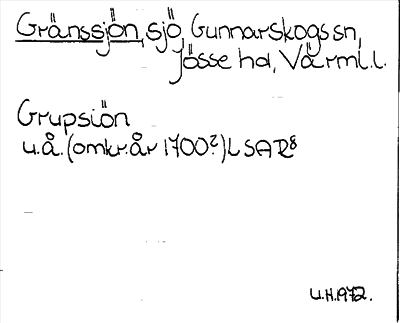 Gränssjön, sjö, Gunnarskogs sn,
Jösse hd, Värml.l.
Grupsiön
u.å. (omkr. år 1700?) LSAR8
U.H.1972.